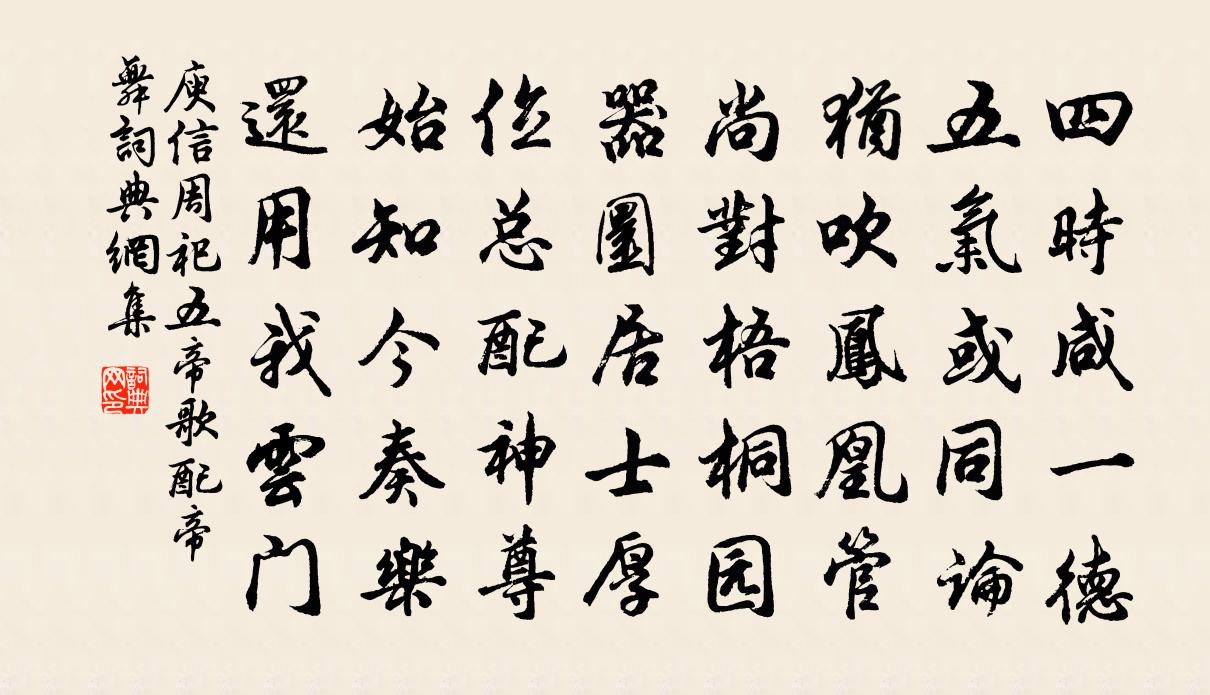 四時咸一德
五氣或同論
猶吹鳳凰管
尚對梧桐园
器圜居士厚
位总配神尊
始知今奏樂
還用我雲門
庾信周祀五帝歌配帝
舞詞典網集
詞典
网印